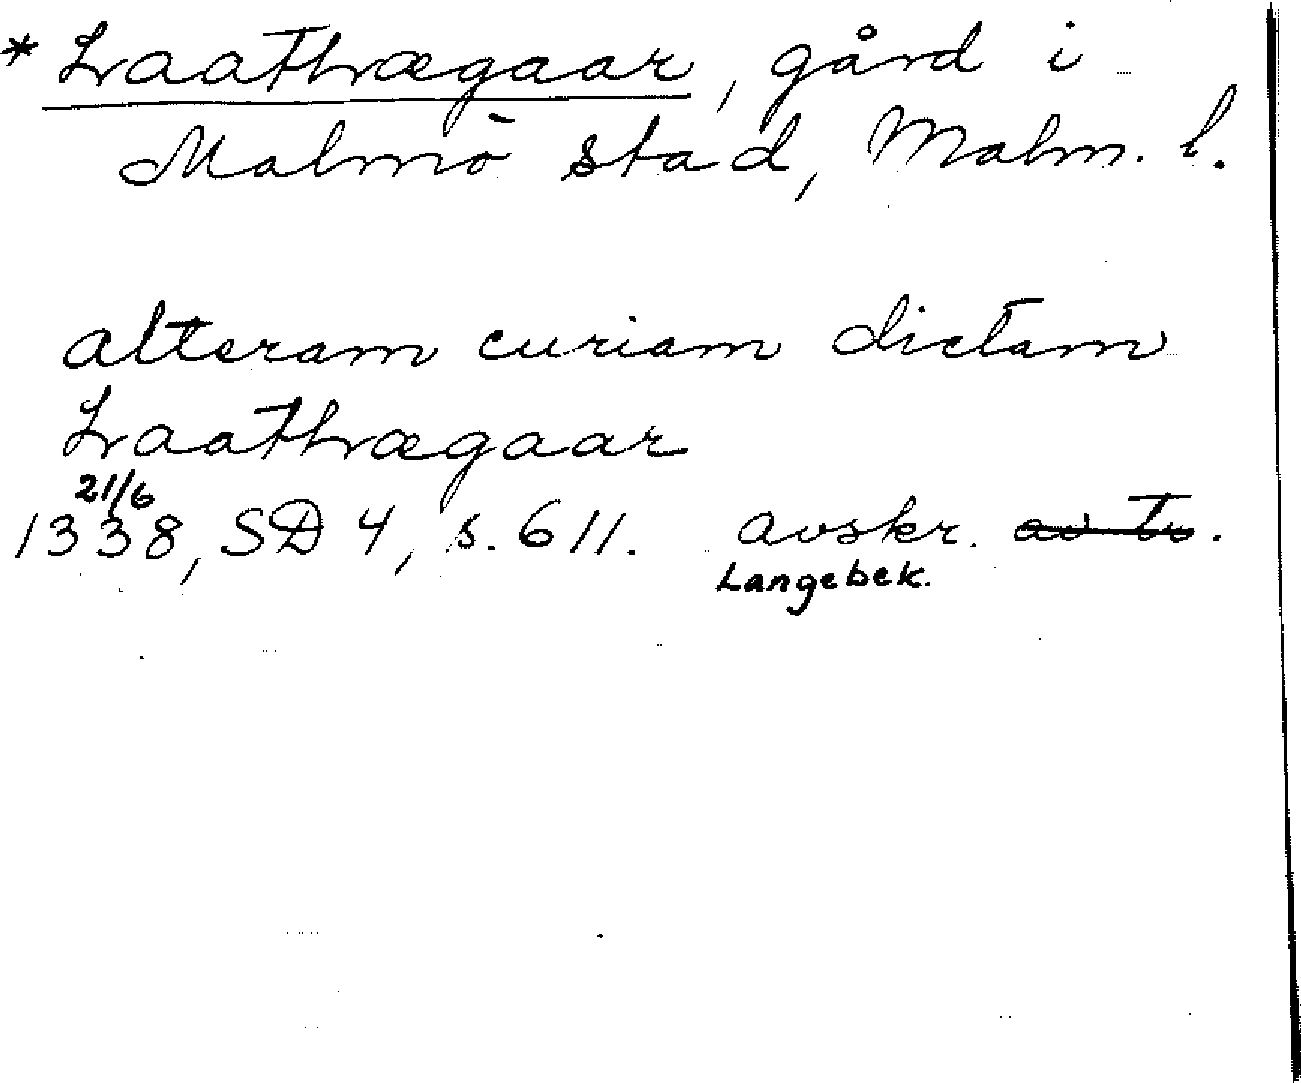 * Laathægaar, gård i
Malmö stad, Malm. l.
alteram curiam dictam
Laathægaar
21/6
1338, SD 4, s. 611. avskr. av tr.
Langebek.